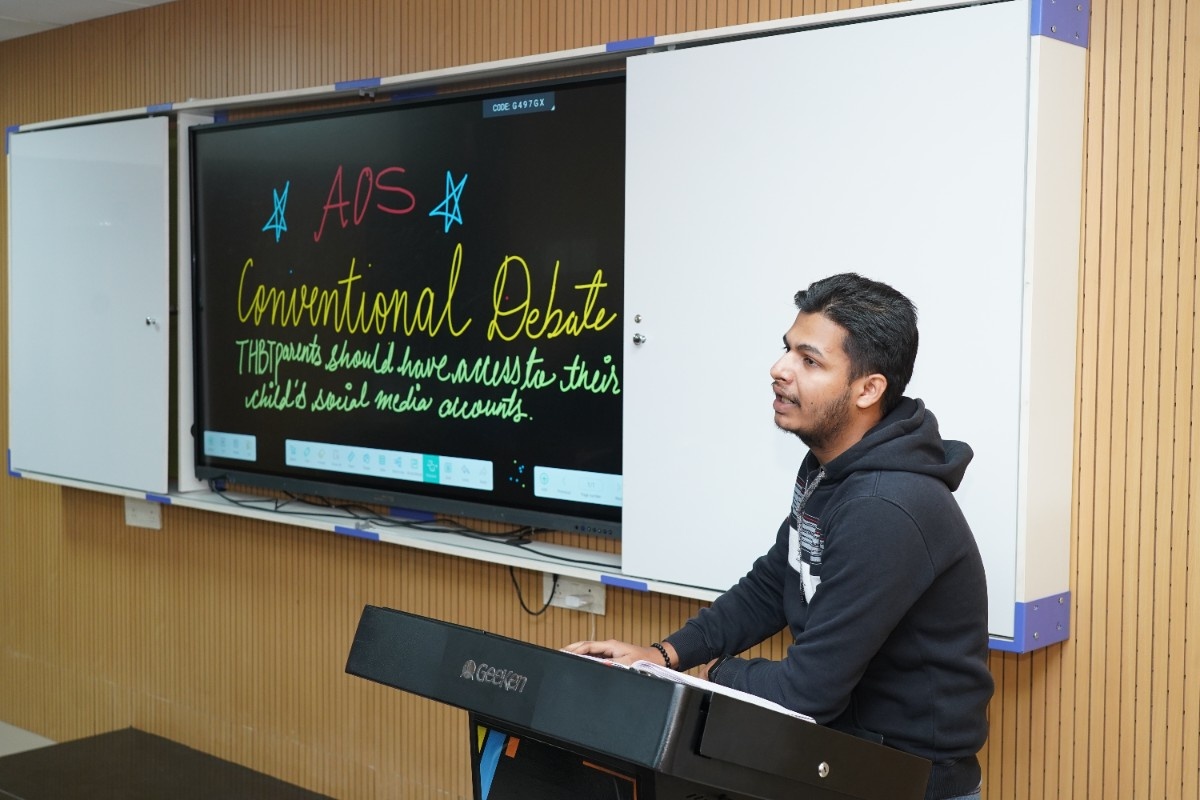 CODE: G497GX
ADS
Conventional Debate
THBT parents should have access to their
child's social media accounts.
GeeKen